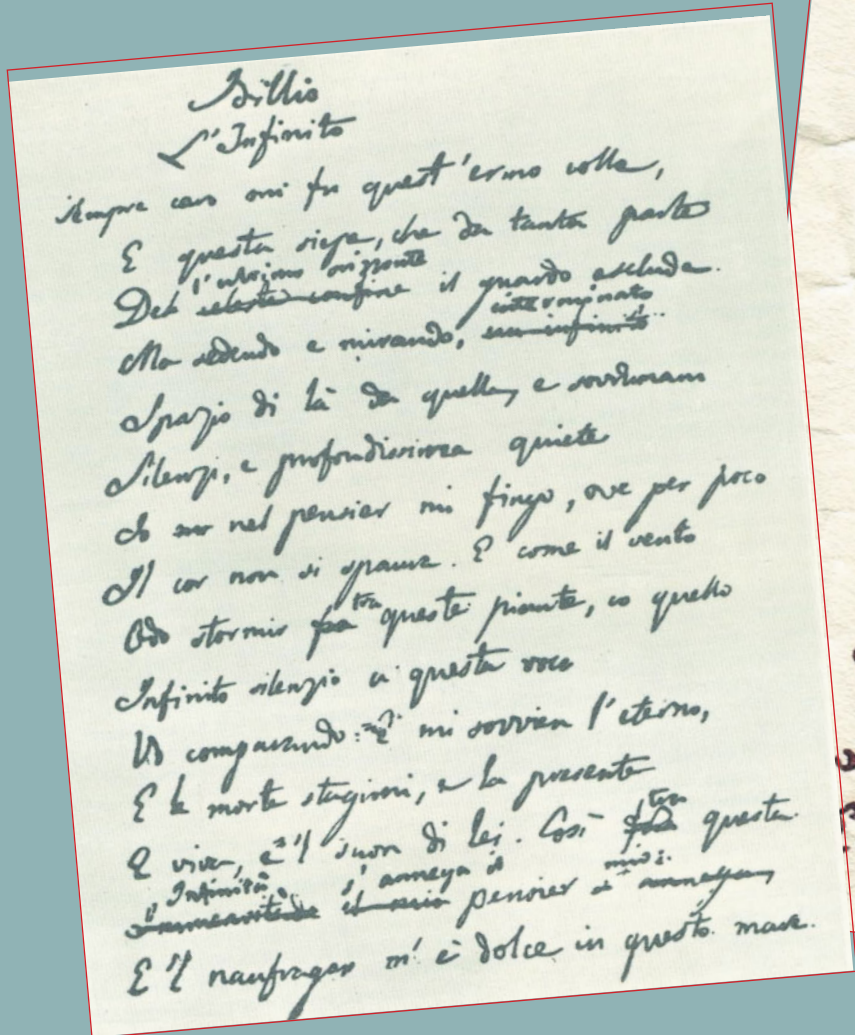 Idillio
L'Infinito
Sempre caro mi fu quest'ermo colle,
E questa siepe, che da tanta parte
l'ultimo orizzonte
Del celeste confine il guardo esclude.
interminato
Ma sedendo e mirando, un infinito
Spazio di là da quella, e sovrumani
Silenzi, e profondissima quiete
Io nel pensier mi fingo, ove per poco
Il cor non si spaura. E come il vento
tra
Odo stormir fra queste piante, io quello
Infinito silenzio a questa voce
Vo comparando: e mi sovvien l'eterno,
E le morte stagioni, e la presente
tra
E viva, e 'l suon di lei. Così fra questa
Infinità s'annega il mio:
immensitade il mio pensier s'annega,
E 'l naufragar m'è dolce in questo mare.